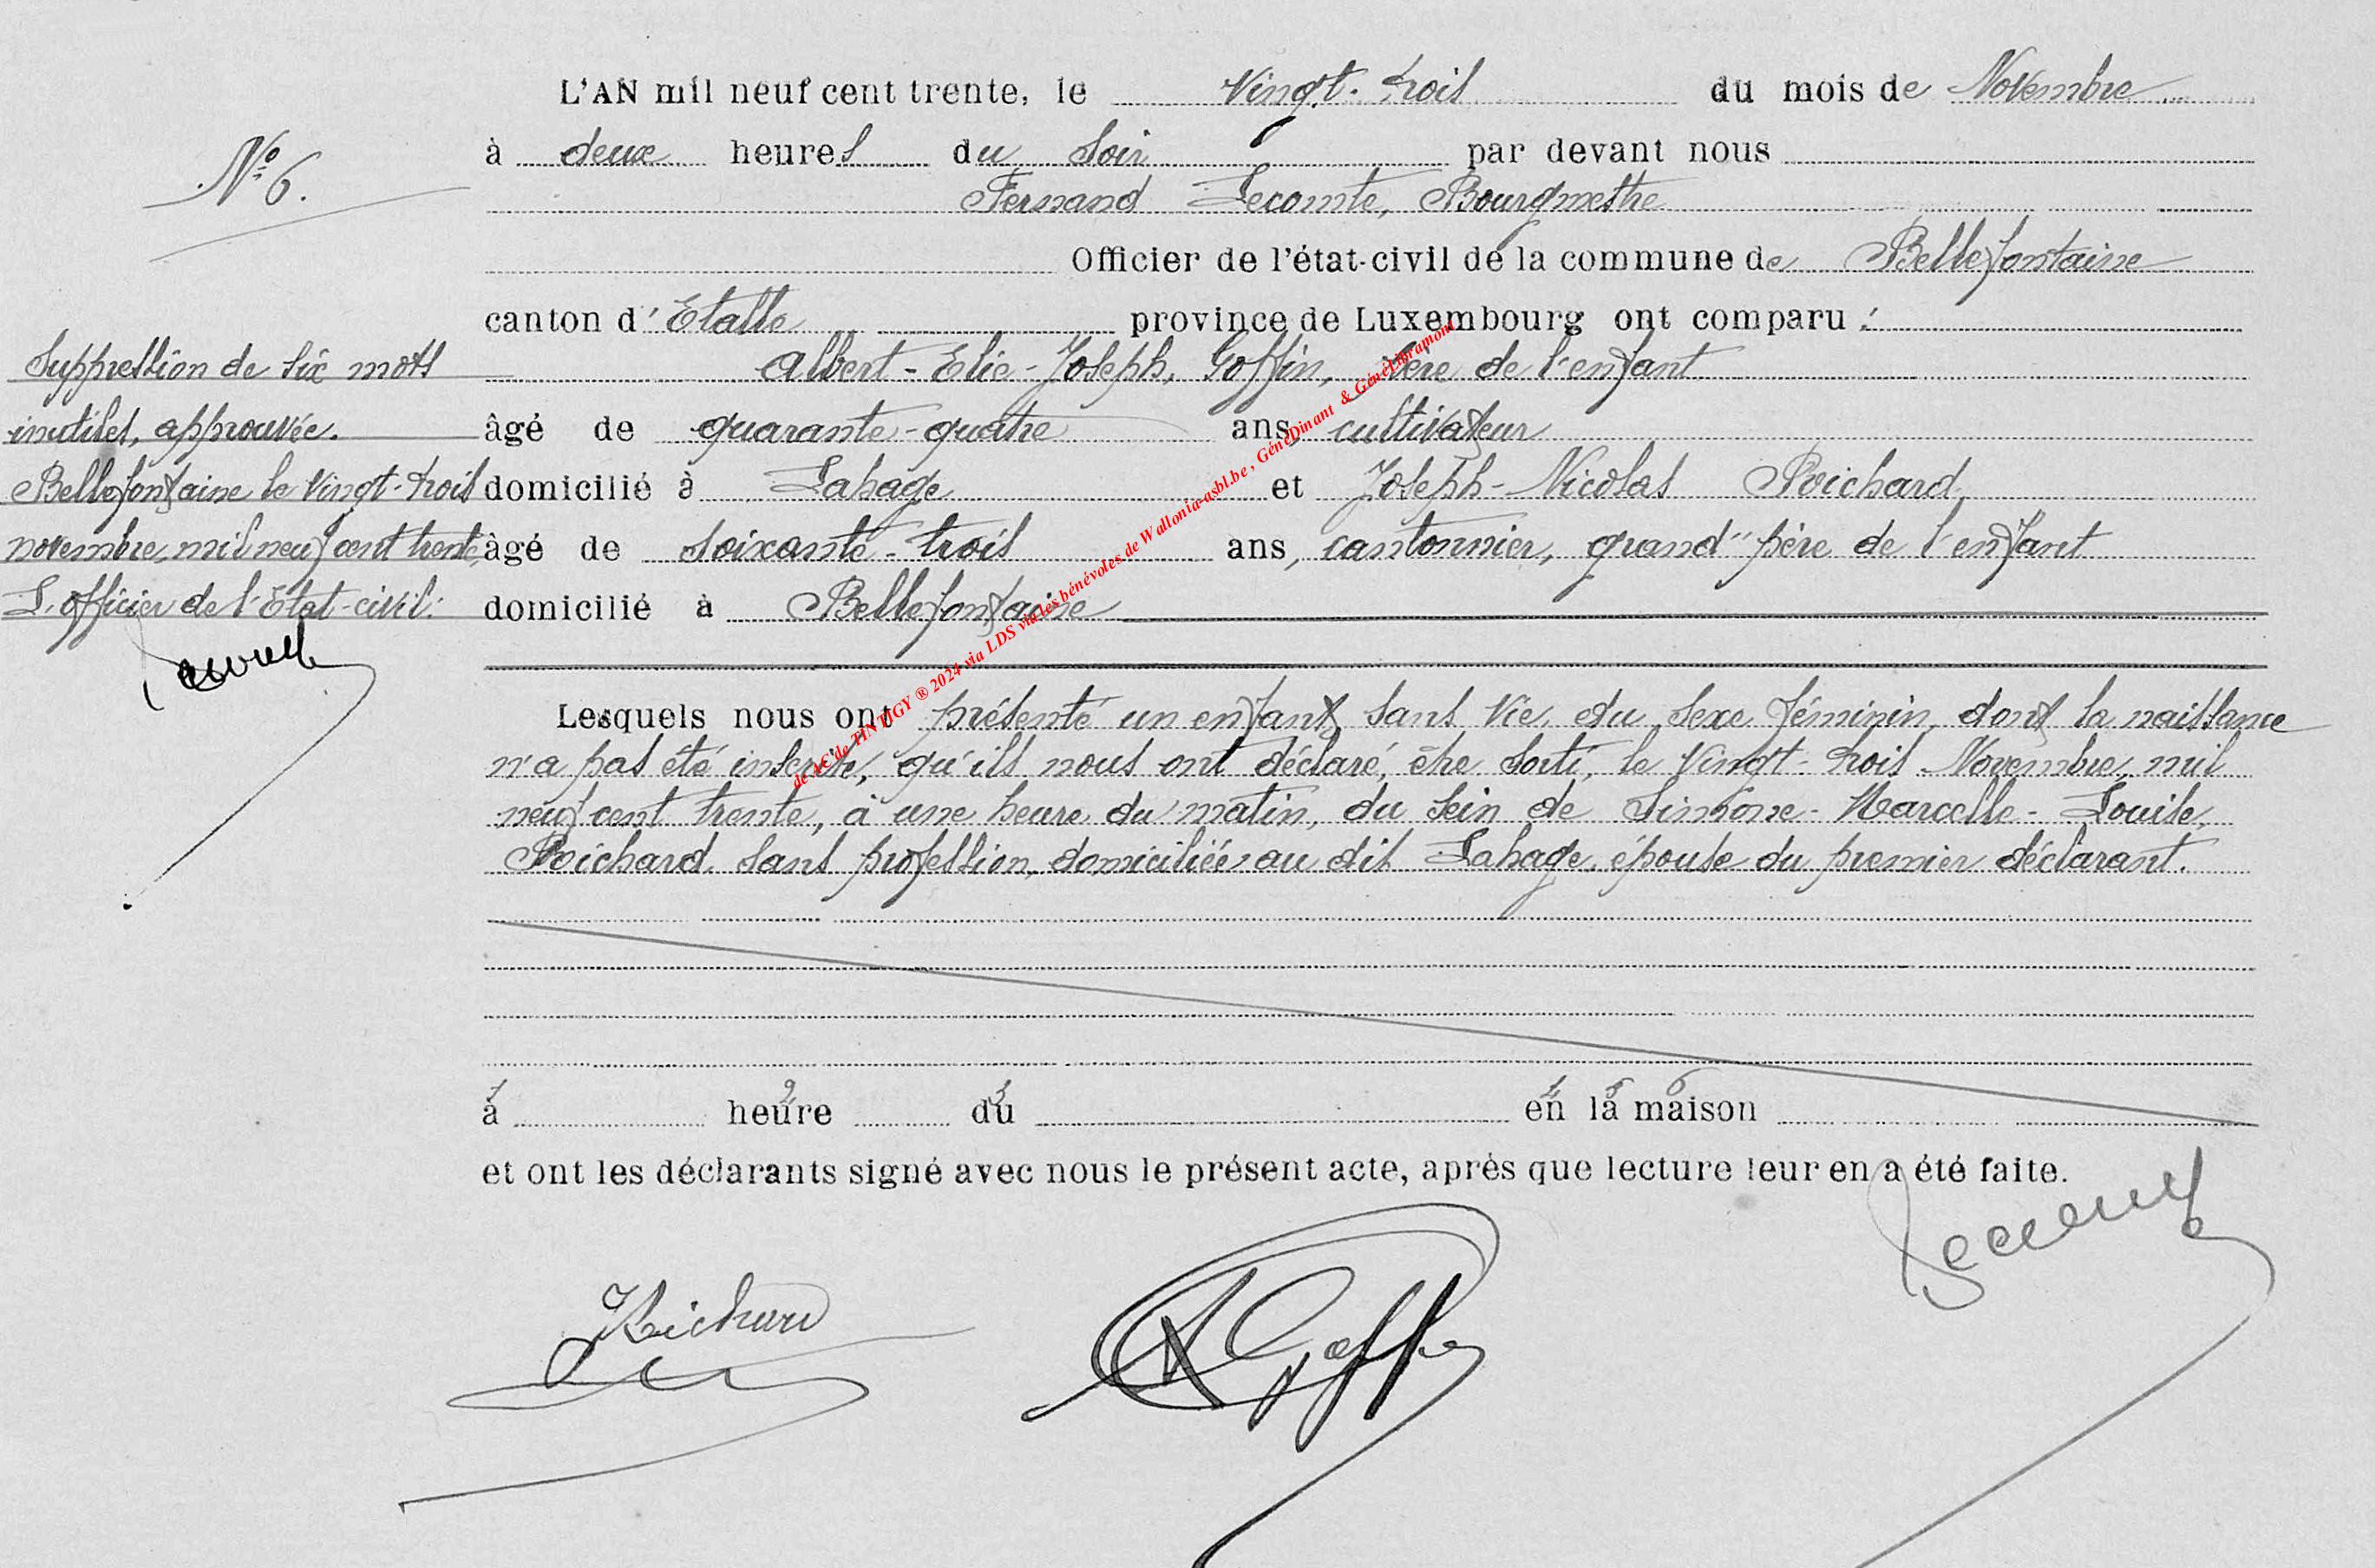 L'AN mil neuf cent trente, le Vingt-trois du mois de Novembre
N° 6.
à deux heures du Soir par devant nous
Fernand Lecomte, Bourgmestre
Officier de l'état-civil de la commune de Bellefontaine
canton d'Etalle province de Luxembourg ont comparu :
Albert-Elie-Joseph, Goffin, père de l'enfant
âgé de quarante-quatre ans, cultivateur
domicilié à Lahage et Joseph-Nicolas Poichard,
âgé de soixante-trois ans, cantonnier, grand'père de l'enfant
domicilié à Bellefontaine
Suppression de six mots
inutiles, approuvée.
Bellefontaine le vingt-trois
novembre, mil neuf cent trente,
L'officier de l'Etat-civil:
Lesquels nous ont présenté un enfant, sans vie, du sexe féminin, dont la naissance
n'a pas été inscrite, qu'ils nous ont déclaré, être sorti, le Vingt-trois Novembre, mil
neuf cent trente, à une heure du matin, du sein de Simone-Marcelle-Louise,
Poichard, sans profession, domiciliée au dit Lahage, épouse du premier déclarant.
1 2 3 4 5 6
à heure du en la maison
et ont les déclarants signé avec nous le présent acte, après que lecture leur en a été faite.
A Goffin
de AC de TINTIGY ® 2024 via LDS via les bénévoles de Wallonia-asbl.be , GénéDinant & GénéLibramont